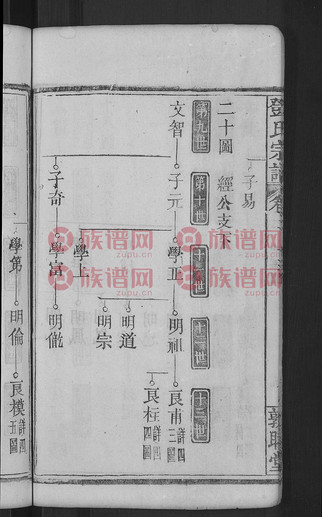 鄧氏宗譜
敦睦堂
子易
二十圖 經公支下
第九世
第十世
十一世
十二世
十三世
文智 子元 學正 明祖 良甫 詳四三圖
良柱 詳四四圖
明道
明宗
學上
子奇 學富 明儆
學第 明倫 良模 詳四五圖
族谱网
zupu.cn